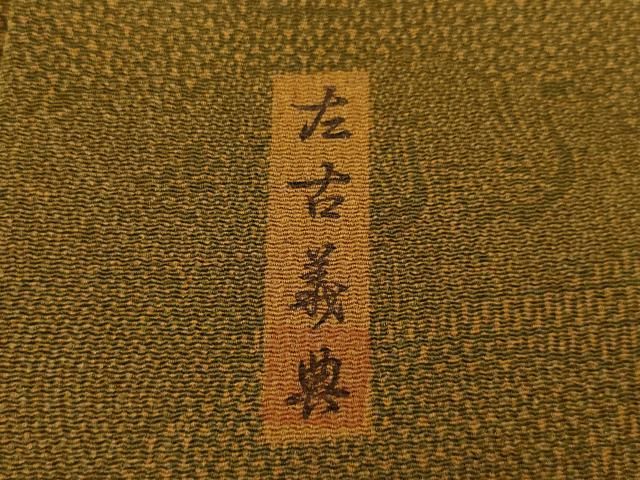 左古義典